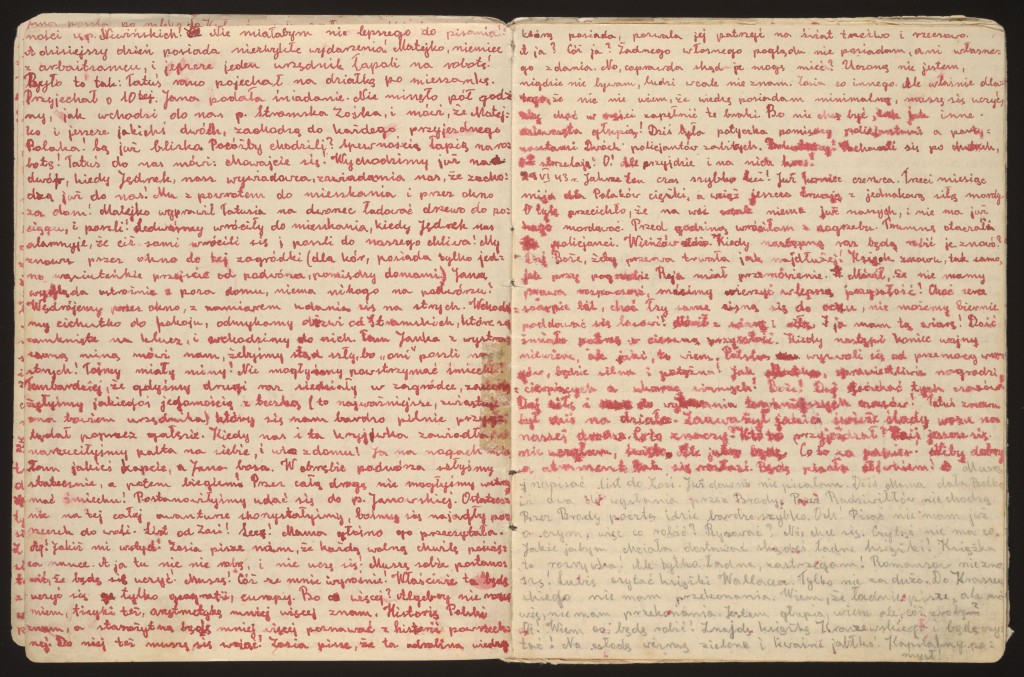 ności u p. Niwińskich! Nie miałabym nic lepszego do pisania!
A dzisiejszy dzień posiada niezwykłe wydarzenia. Matejko, niemiec
z arbaitsamcu, i jeszcze jeden urzędnik łapali na roboty!
Było to tak: Tatuś rano pojechał na działkę po mieszankę.
Przyjechał o 10tej. Jana podała śniadanie. Nie minęło pół godzi
ny, jak wchodzi do nas p. Stramska Zośka, i mówi, że Matej-
ko i jeszcze jakichś dwóch, zachodzą do każdego przyjezdnego
Polaka! Są już bliska Poczórty chodzili? Z pewnością łapią na ro
botę! Tatuś do nas mówi: chowajcie się! Wychodzimy już na
dwór, kiedy Jędrek, nasz wywiadowca, zawiadamia nas, że zacho-
dzą już do nas! My z powrotem do mieszkania i przez okno
za dom! Matejko wyprawił Tatusia na dworzec ładować drzewo do po
ciągu, i poszli! Ledwośmy wróciły do mieszkania, kiedy Jędrek nas
alarmuje, że ciż sami wrócili się i poszli do naszego chliwa! My
znowu przez okno do tej zagródki (dla kór, posiada tylko jed-
no wąziuteńkie przejście od podwórza, pomiędzy domami) Jana
wygląda ostrożnie z poza domu, niema nikogo na podwórzu!
Wędrójemy przez okno, z zamiarem udania się na strych. Wchodzi
my cichutko do pokoju, odmykamy drzwi od Stramskich, które są
zamknięte na klucz, i wchodzimy do nich. Tam Janka z wystra
szoną miną mówi nam, żebyśmy stąd szły, bo „oni" poszli na
strych! Fajnej miały miny! Nie mogłyśmy powstrzymać śmiechu!
tembardziej, że gdyśmy drugi raz siedziały w zagródce,
żyłyśmy jakiegoś jegomościa z teczką (to najważniejsze, zwiastu
ona bowiem urzędnika) który się nam bardzo pilnie
glądał poprzez gałęzie. Kiedy nas i ta kryjówka zawiodła,
narzuciłyśmy palta na siebie, i wio z domu! Ja na nogach
tam jakieś kapcie, a Jana bosa. W obrębie podwórza szłyśmy
statecznie, a potem biegiem! Przez całą drogę nie mogłyśmy wstrzy
mać śmiechu! Postanowiłyśmy udać się do p. Janowskiej. Ostatecz
nie na tej całej awanturze skorzystałyśmy, bośmy się najadły po
rzeczek do woli. List od Zosi! Lecę! Mama głośno go przeczytała.
Oj! Jakiś mi wstyd! Zosia pisze nam, że każdą wolną chwilę poświę
ca nauce. A ja tu nic nie robę, i nie uczę się! Muszę sobie postano
wić, że będę się uczyć! Muszę! Cóż ze mnie wyrośnie! Właściwie to będę
uczyć się tylko geografii, europy. Bo co więcej? Algebry nie rozu
miem, fizyki też, arytmetykę mniej więcej znam. Historię Polski
znam, a starożytną będę mniej więcej poznawać z historii powszech
nej. Do niej też muszę się wziąć! Zosia pisze, że ta odrobina wiedzy
którą posiada, pozwala jej patrzeć na świat trzeźwo i rzeczowo.
A ja? Cóż ja? Żadnego własnego poglądu nie posiadam, ani własne
go zdania. No, coprawda skąd je mogę mieć? Uczoną nie jestem,
nigdzie nie bywam, ludzi wcale nie znam. Zosia co innego. Ale właśnie dla
tego, że nic nie wiem, że wiedzę posiadam minimalną, muszę się uczyć,
aby choć w części zapełnić te braki. Bo nie chcę być inne
głupią! Dziś była potyczka pomiędzy policjantami a party-
zantami. Dwóch policjantów zabitych. się po chatach,
ostrzelają! O! Ale przyjdzie i na nich kres!
29 VI 43 r. Jak że ten czas szybko leci! Już koniec czerwca. Trzeci miesiąc
mija dla Polaków ciężki, a wciąż jeszcze trwają z jednakową siłą mordy.
O tyle przecichło, że na wsi niema już naszych, i nie ma już
kogo mordować. Przed godziną wróciłam z pogrzebu. Trumnę otaczała
policjanci. Wieńców dużo. Kiedy następny raz będą robić je znowu?
Daj Boże, żeby przerwa trwała jak najdłużej! Ksiądz znowu, tak samo,
jak przy pogrzebie Reja miał przemówienie. Mówił, że nie mamy
prawa rozpaczać, musimy wierzyć w lepszą przyszłość! Choć serce
szarpie ból, choć łzy same cisną się do oczu, nie możemy biernie
poddawać się losowi! Mówił z wiarą i siłą. I ja mam tę wiarę! Dość
śmiało patrzę w ciemną przyszłość. Kiedy nastąpi koniec wojny
niewiem, ale jaki, to wiem. Polska wyzwoli się od przemocy wro-
gów, będzie silna i potężna! Jak Matka, sprawiedliwie nagrodzi
cierpiących a ukarze winnych! Boże! Daj doczekać tych czasów!
Daj siłę do wytrwania teraźniejszych czasów! Tatuś znowu
był dziś na działce. Zauważył jakieś świeże ślady wozu na
naszej drodze. Co to znaczy? Kto to przyjeżdżał? Dziś jeszcze się
nie uczyłam, Ale jutro będę. Co to za papier. Niby dobry
a atrament tak się rozlazi. Będę pisała ołówkiem! Muszę
j napisać list do Zosi. Już dawno nie pisałam. Dziś Mama dała Bielko
ci ona już wysłania przez Brody. Przez Radziwiłłów nie chodzą
Przez Brody poczta idzie bardzo szybko. Och! Pisać nie mam już
o czym, więc co robić? Rysować? Nie chce się. Czytać nie ma co.
Jakie jabym chciała dostawać skądeś ładne książki! Książka
to rozrywka! Ale tylko ładna, zastrzegam! Romansów nie zno
szę! Lubię czytać książki Wallacea. Tylko nie za dużo. Do Kraszew
skiego nie mam przekonania. Wiem, że ładnie pisze, ale mó
wię, nie mam przekonania. Jestem głupia, wiem, ale cóż zrobię?
O! Wiem co będę robić! Znajdę książkę Kraszewskiego i będę czy
tać! Na osłodę wezmę zielone i kwaśne jabłko. Kapitalny po-
mysł!